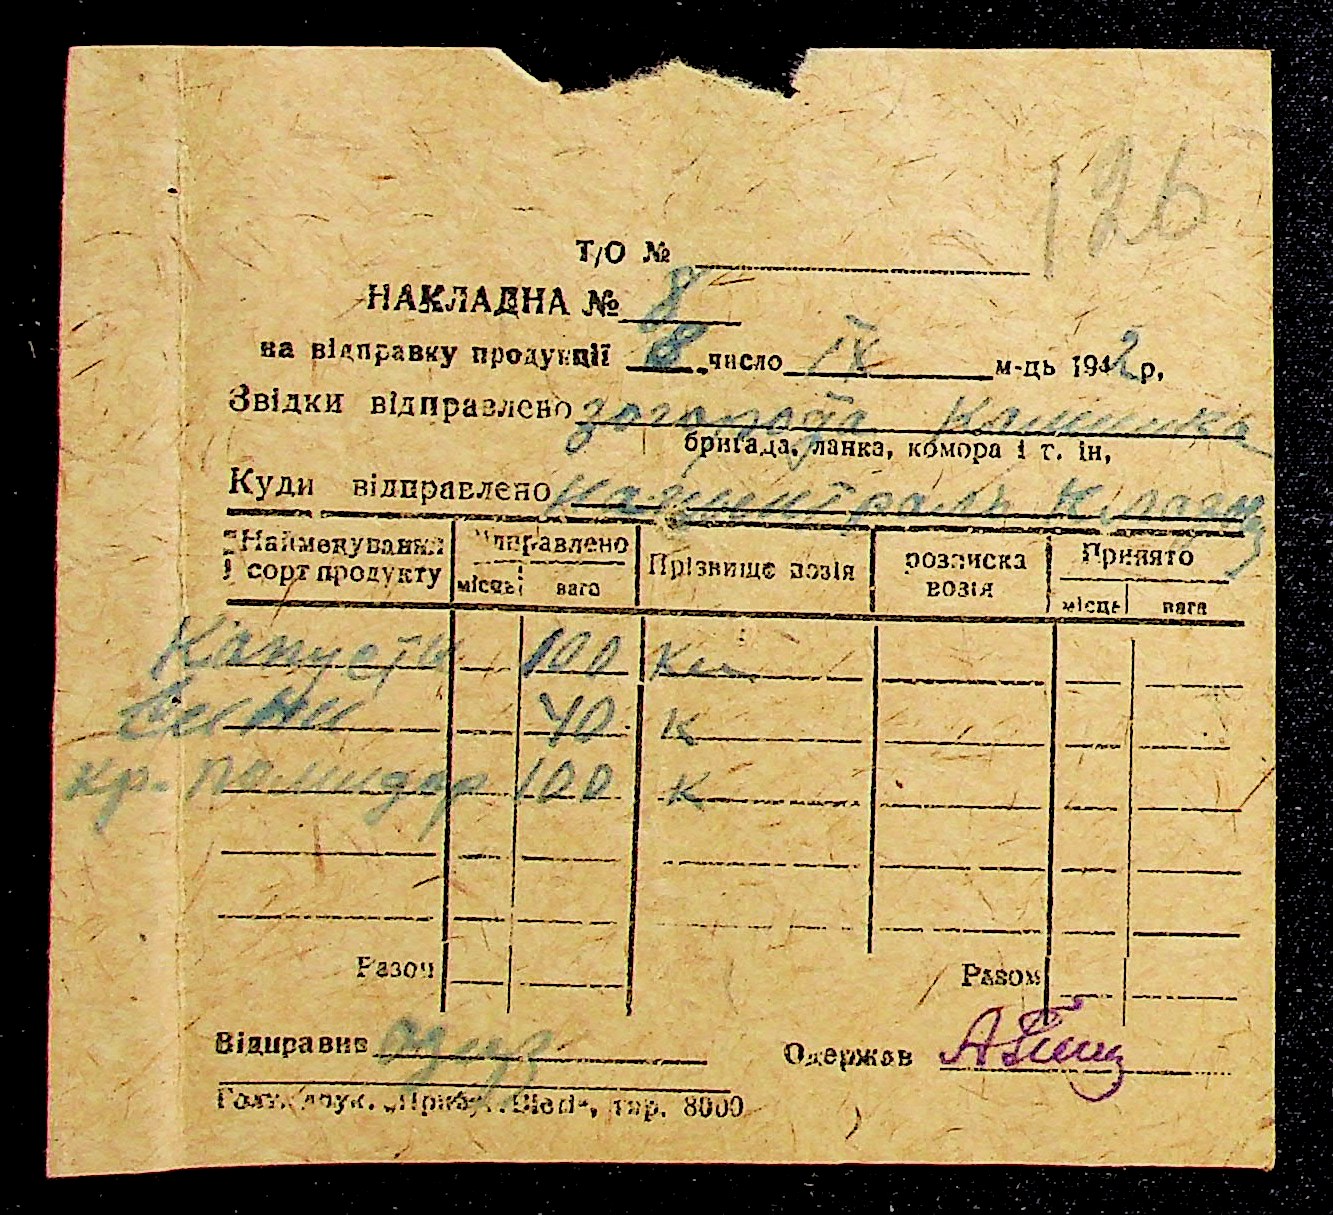 126
Т/О №
НАКЛАДНА № 8
на відправку продукції 8 число ІХ м-ць 1942 р,
Звідки відправлено з огорода
бригада, ланка, комора і т. ін,
Куди відправлено
Найменування сорт продукту Відправлено місць вага Прізвище возія розписка возія Прийнято місць вага
Капусти 100 кг
40 к
кр. помидор 100 к
Разом Разом
Відправив
Одержав
друк. тир. 8000